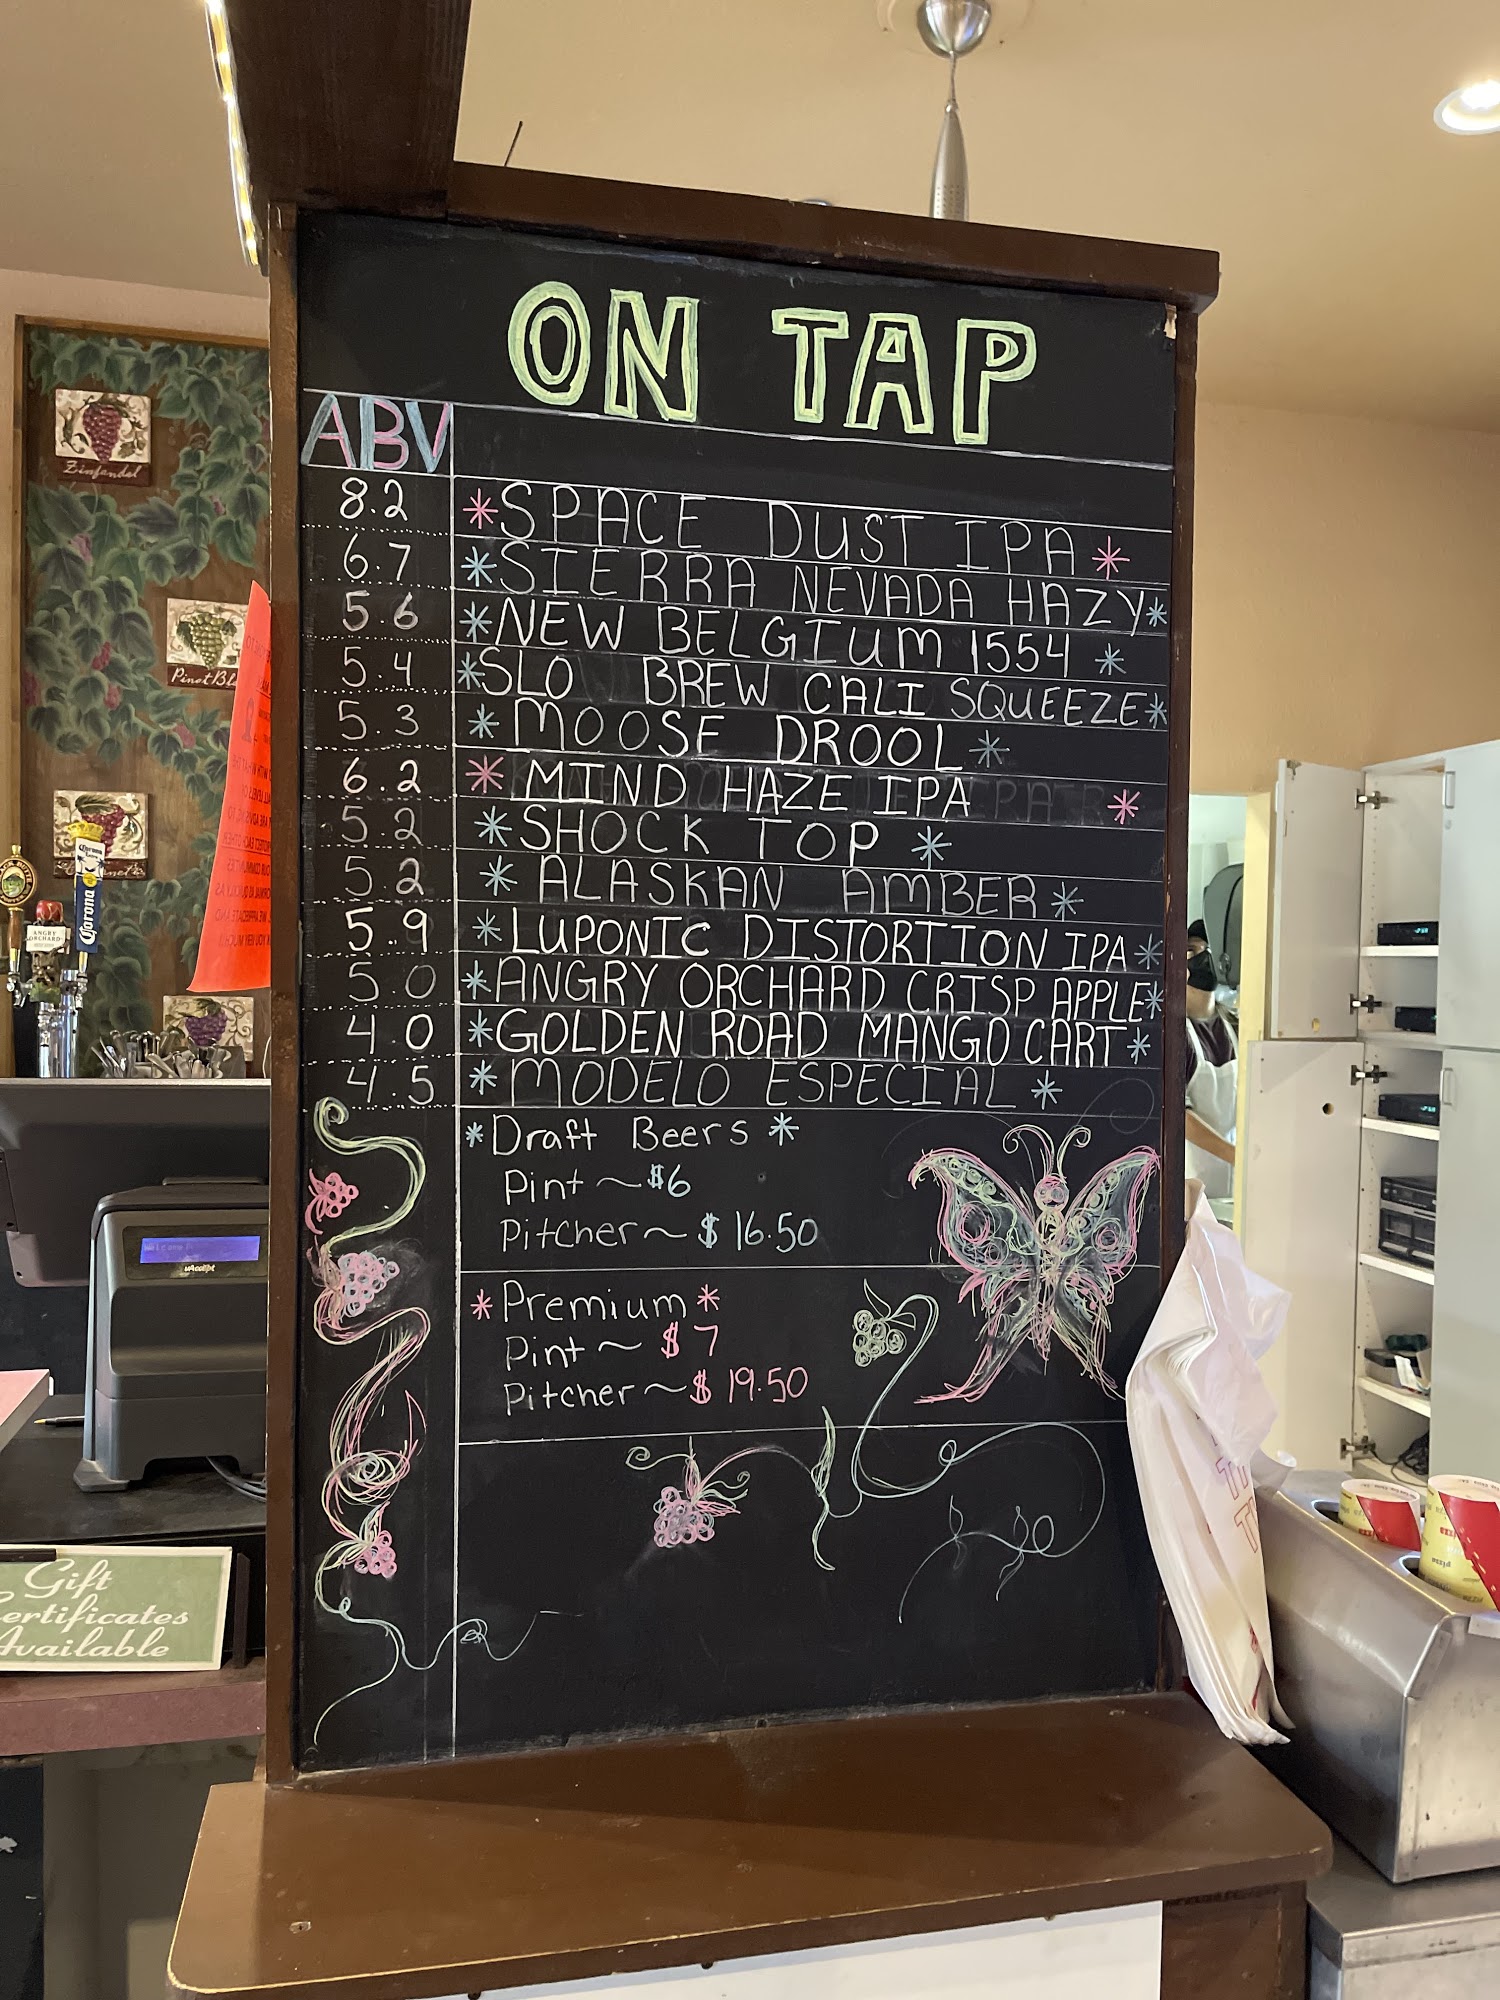 ON TAP
ABV
8.2 *SPACE DUST IPA*
6.7 *SIERRA NEVADA HAZY*
5.6 *NEW BELGIUM 1554 *
5.4 *SLO BREW CALI SQUEEZE*
5.3 * MOOSE DROOL *
6.2 * MIND HAZE IPA *
5.2 * SHOCK TOP *
5.2 * ALASKAN AMBER *
5.9 * LUPONIC DISTORTION IPA *
5.0 *ANGRY ORCHARD CRISP APPLE*
4.0 *GOLDEN ROAD MANGO CART *
4.5 * MODELO ESPECIAL *
*Draft Beers *
Pint ~ $6
Pitcher ~ $ 16.50
* Premium *
Pint ~ $ 7
Pitcher ~ $ 19.50
Zinfandel
Corona
ANGRY
ORCHARD
Gift
Certificates
Available